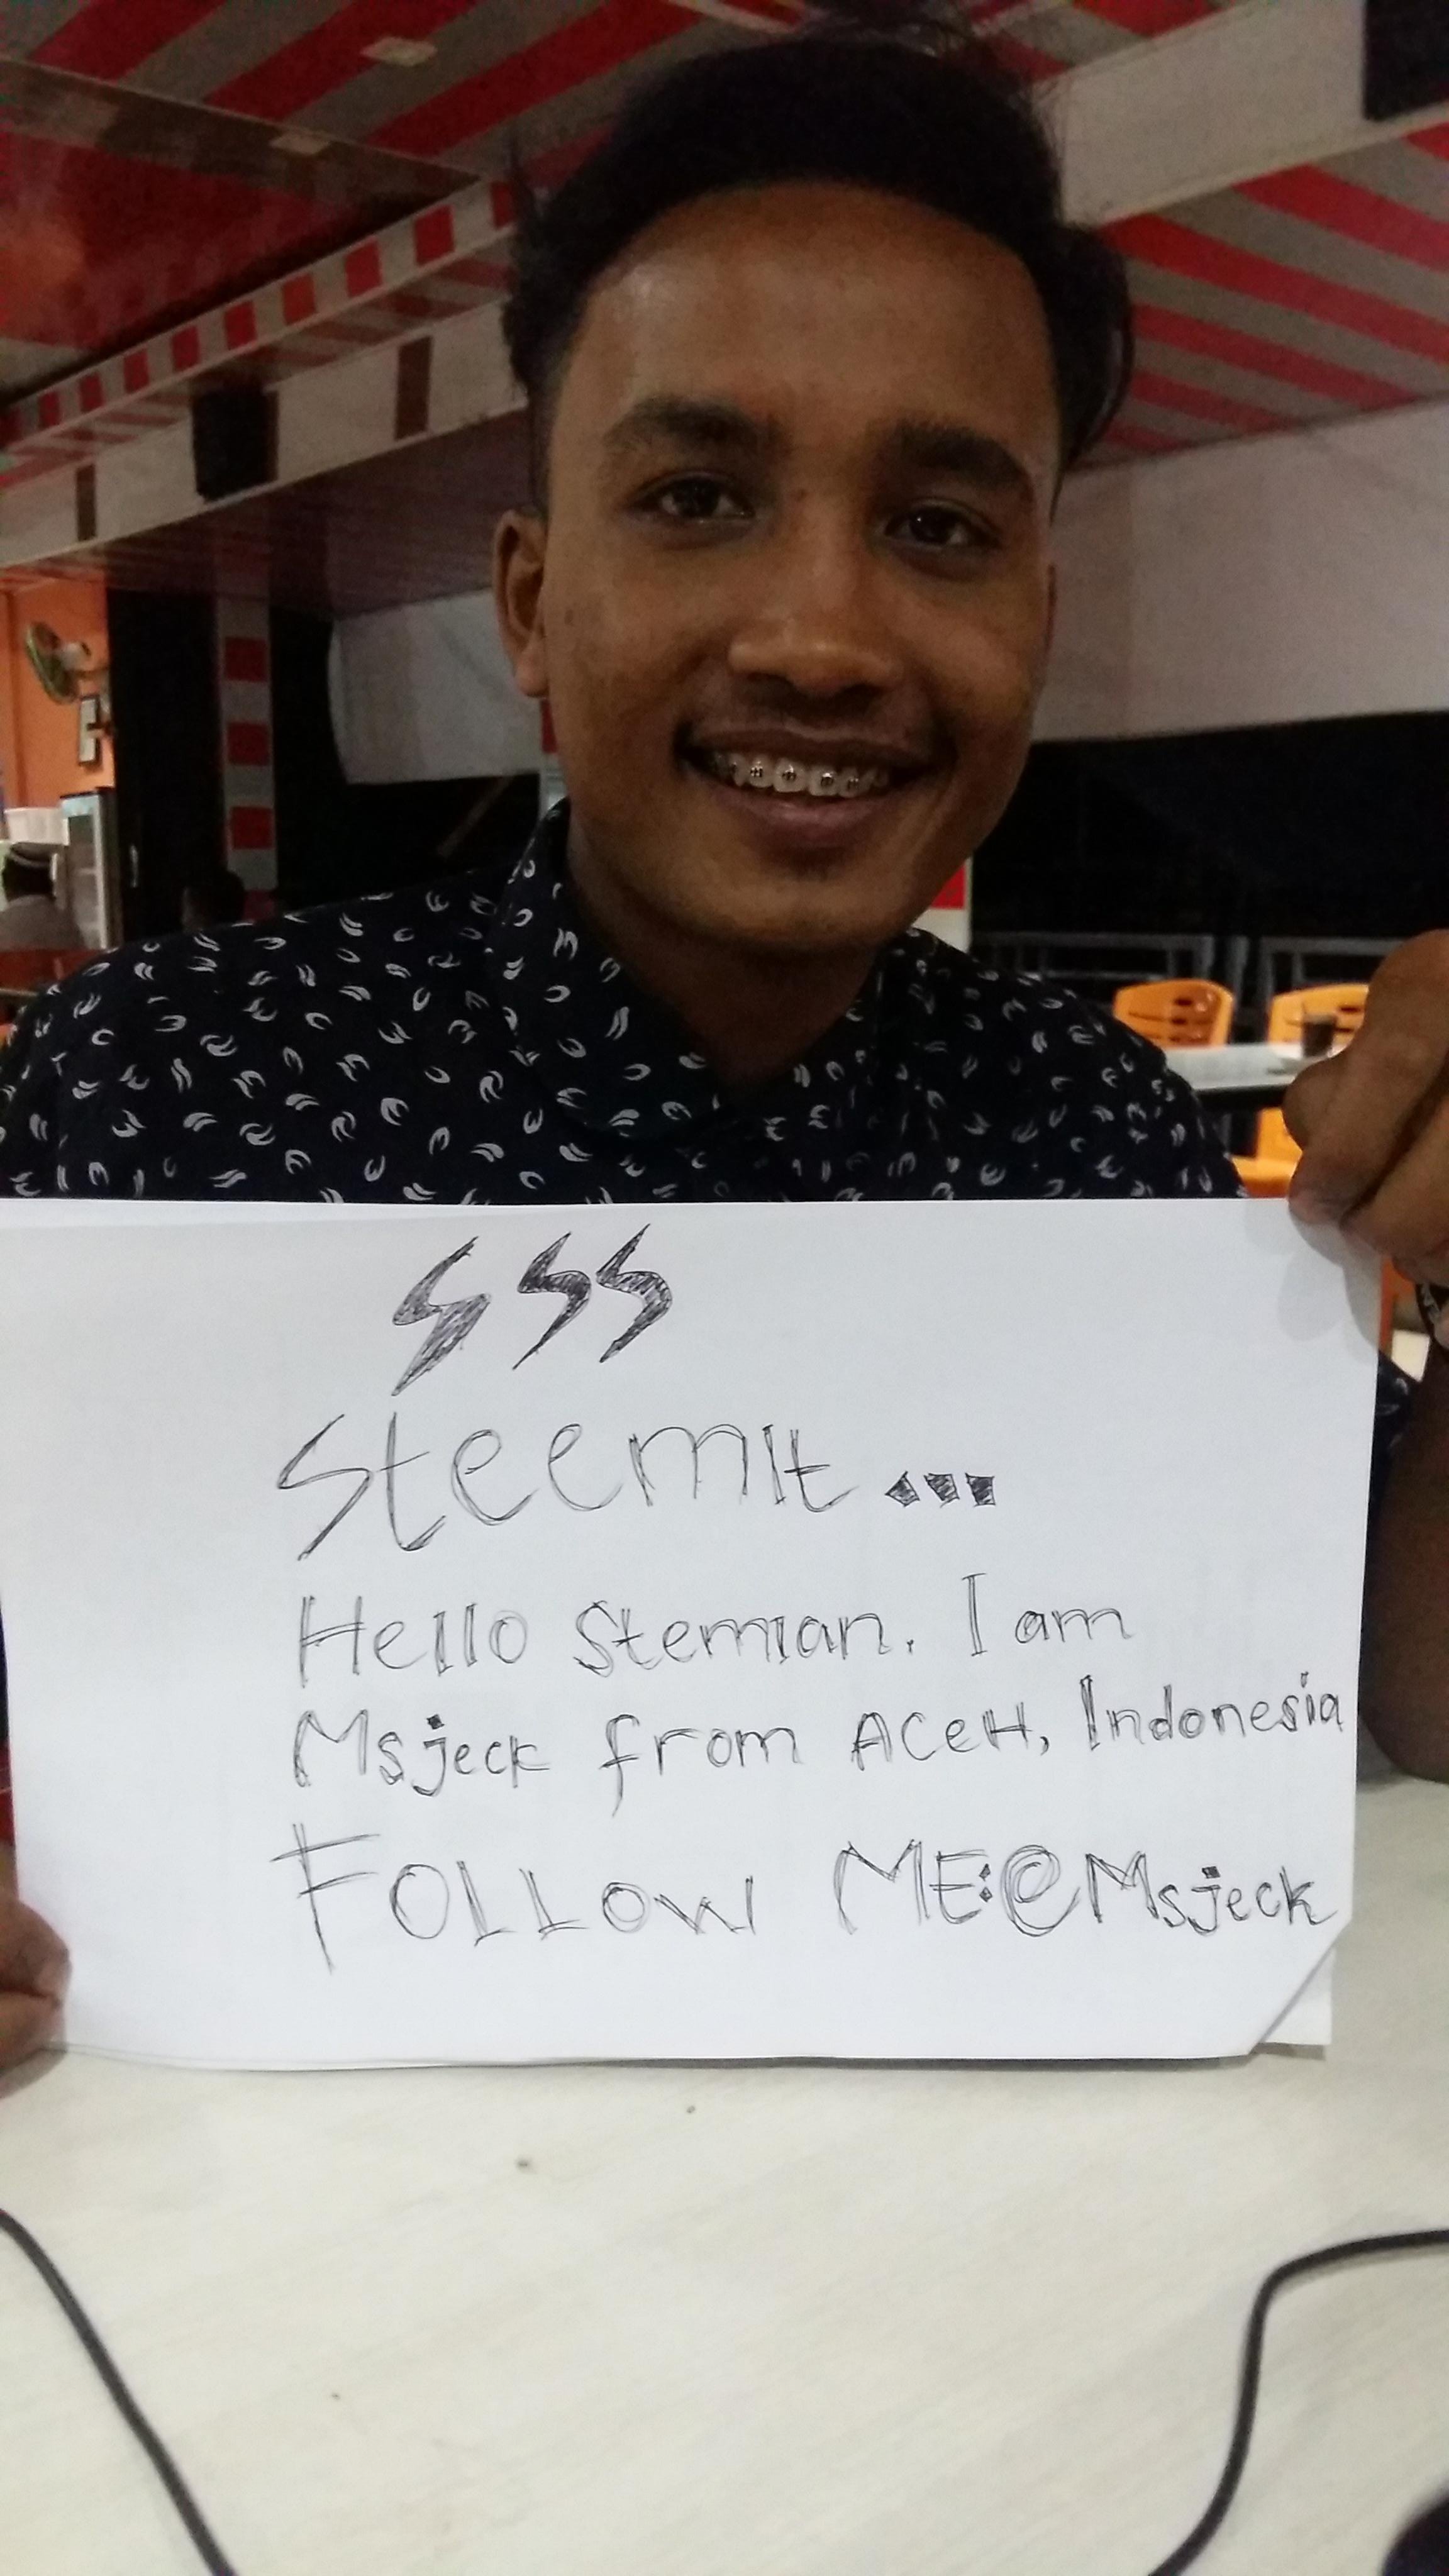 SteemIt...
Hello Stemian. I am
Msjeck from AceH, Indonesia
FOLLOW ME:@Msjeck